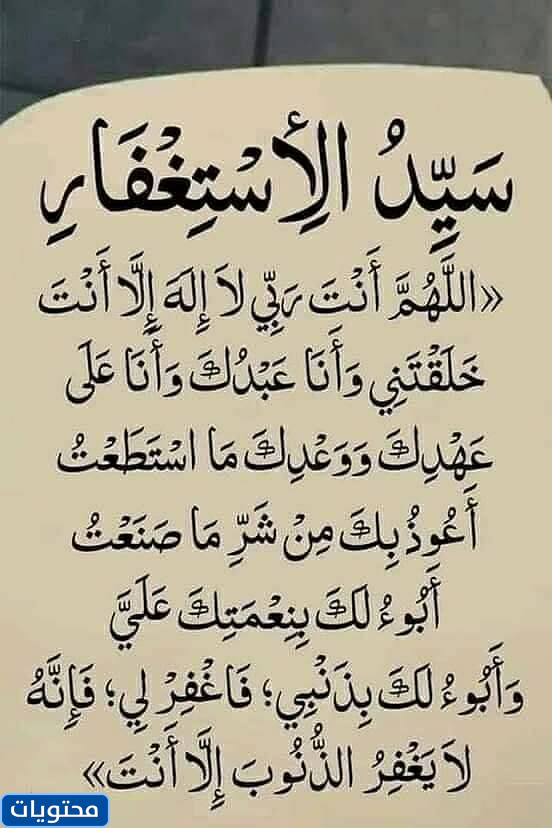 سَيِّدُ الْإِسْتِغْفَارِ
«اللَّهُمَّ أَنْتَ رَبِّي لَا إِلَهَ إِلَّا أَنْتَ
خَلَقْتَنِي وَأَنَا عَبْدُكَ وَأَنَا عَلَى
عَهْدِكَ وَوَعْدِكَ مَا اسْتَطَعْتُ
أَعُوذُ بِكَ مِنْ شَرِّ مَا صَنَعْتُ
أَبُوءُ لَكَ بِنِعْمَتِكَ عَلَيَّ
وَأَبُوءُ لَكَ بِذَنْبِي؛ فَاغْفِرْ لِي؛ فَإِنَّهُ
لَا يَغْفِرُ الذُّنُوبَ إِلَّا أَنْتَ»
محتويات